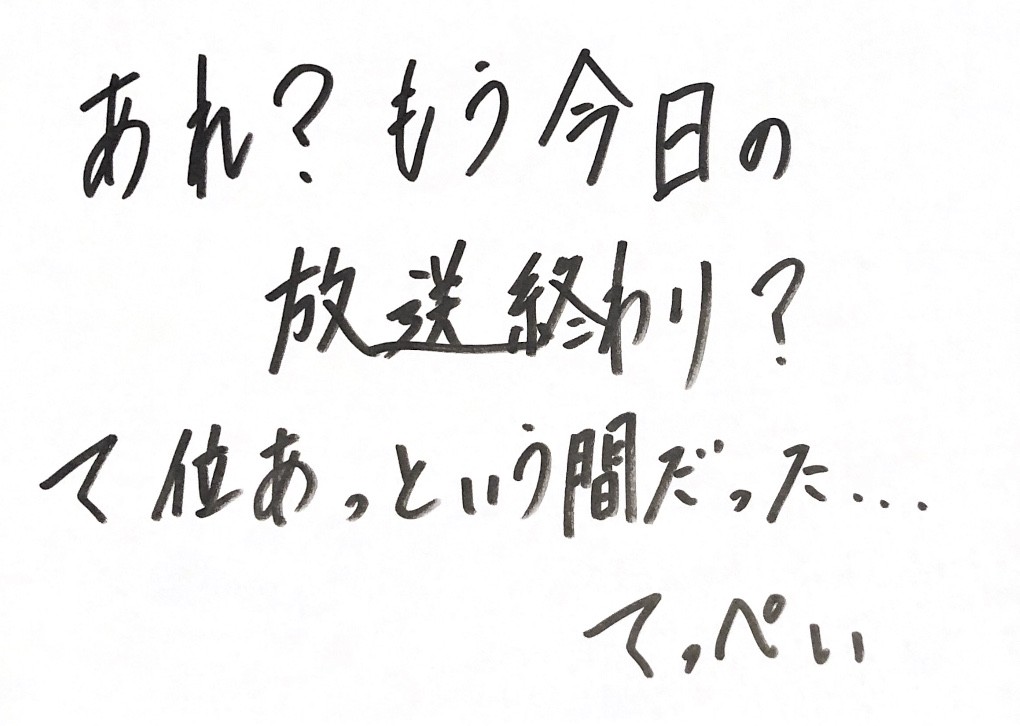 あれ?もう今日の
放送終わり?
て位あっという間だった...
てっぺい